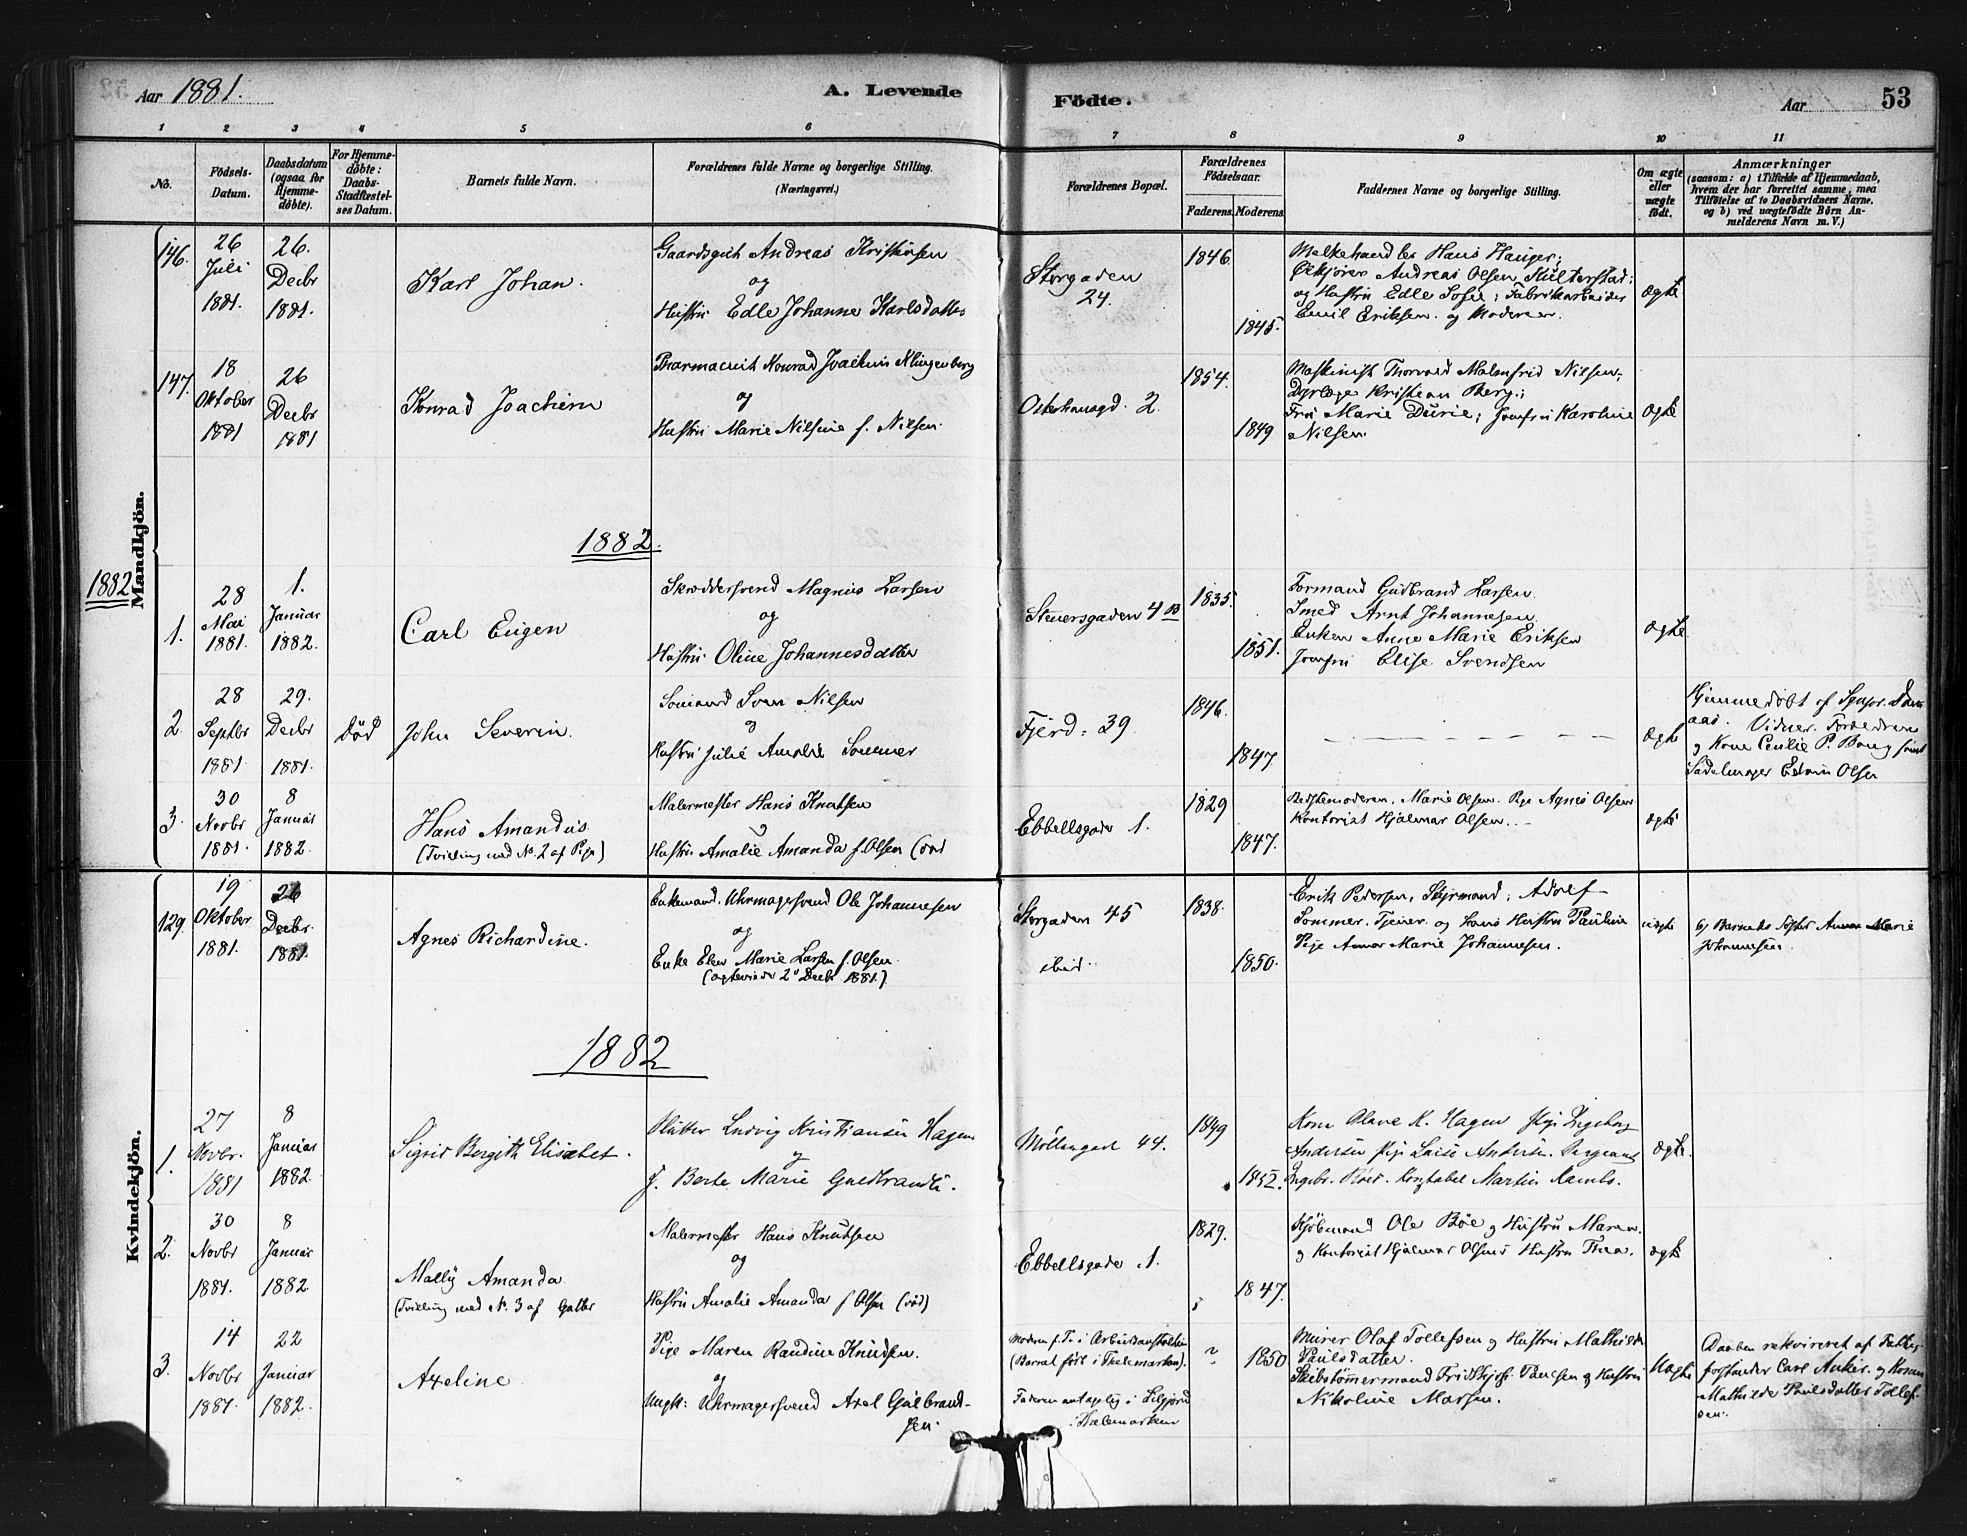 Aar 1881.
A. Levende Födte.
Aar
53
1 2 3 4 5 6 7 8 9 10 11
No.
Födsels-Datum.
Daabsdatum (ogsaa for Hjemme-döbte).
For Hjemme-döbte: Daabs-Stadfæstel-ses Datum.
Barnets fulde Navn.
Forældrenes fulde Navne og borgerlige Stilling. (Næringsvei.)
Forældrenes Bopæl.
Forældrenes Födselsaar.
Faderens. Moderens.
Faddernes Navne og borgerlige Stilling.
Om ægte eller uægte födt.
Anmærkninger
(saasom: a) i Tilfælde af Hjemmedaab, hvem der har forrettet samme, med Tilföielse af to Daabsvidners Navne. og b) ved uægtefödte Börn An-melderens Navn m. V.)
Mandkjön.
146. 26 Juli 1881. 26. Decbr 1881.
Karl Johan.
Gaardsgut Andreas Kristiansen
og
Hustru Edle Johanne Karlsdatter
Storgaden 24.
1846. 1845.
Melkehandler Hans Hauger;
Andreas Olsen
og Hustru Edle Sofie; Fabrikarbeider
Emil Eriksen. og Moderen.
ægte
147. 18 Oktober 1881 26 Decbr 1881
Konrad Joachim
Pharmaceut Konrad Joachim Klingenberg
og
Hustru Marie Nilsine f. Nilsen.
Osterhausgd. 2.
1854. 1849
Maskinist Thorvald Malmfrid Nilsen;
Dyrlæge Kristian Berg;
Fru Marie Durie; Jomfru Karoline
Nilsen.
ægte
1882.
1882
1. 28 Mai 1881. 1. Januar 1882.
Carl Eugen
Skræddersvend Magnus Larsen
og
Hustru Oline Johannesdatter
Stenersgaden 4 B
1835. 1851.
Formand Gudbrand Larsen.
Smed Arnt Johannesen.
Enken Anne Marie Eriksen
Jomfru Elise Svendsen
ægte
2. 28 Septbr 1881 29. Decbr 1881.
död
John Severin.
Sömand Sven Nilsen
og
Hustru Julie Amalie Sommer
Fjerd: 39
1846. 1847.
ægte
Hjemmedöbt af
Vidner. Forældrene
og Kone Cecilie P. Bang samt
Sadelmager Edvin Olsen
3. 30 Novbr 1881. 8 Januar 1882.
Hans Amandus
(Tvilling med No. 2 af Pige)
Malermester Hans Knutsen
og
Hustru Amalie Amanda f. Olsen (död
Ebbellsgade 1.
1829 1847.
Bedstemoderen, Marie Olsen. Pige Agnes Olsen
Kontorist Hjalmar Olsen.
ægte
Kvindekjön.
129. 19 Oktober 1881. 26 Decbr. 1881.
Agnes Richardine.
Enkemand. Uhrmagersvend Ole Johannesen
og
Enke Elen Marie Larsen f. Olsen.
(ægteviede 2' Decbr 1881.)
Storgaden 45
ibid.
1838. 1850.
Erik Pedersen, Styrmand; Adolf
Sommer. Tjener. og hans Hustru Pauline
Pige Anna Marie Johannesen.
uægte
b) Barnets Söster Anna Marie
Johannesen.
1882
1. 27 Novbr. 1881 8 Januar 1882.
Sigrid Bergith Elisabet.
Ludvig Kristiansen Hagen
og
f. Berte Marie Guldbrandsd.
Möllergad 44.
1849 1852.
Kone Olave K. Hagen Pige Ingeborg
Andersen Pige Laise Andersen.
Konstabel Martin
ægte.
2. 30 Novbr 1881. 8 Januar 1882.
Mally Amanda
(Tvilling med N. 3 af Gutter
Malermester Hans Knutsen
og
Hustru Amalie Amanda f Olsen (död)
Ebbellsgade 1.
1829. 1847.
Kjöbmand Ole Böe og Hustru Maren.
og Kontorist Hjalmar Olsens Hustru Thea.
ægte
3. 14 Novbr 1881. 22 Januar 1882.
Axeline
Pige Maren Randine Knudsen.
og
Ungk: Uhrmagersvend Axel Gulbrand-
sen.
Moderen f. T. i Arbeidsanstalten
(Barnet födt i Thelemarken).
Faderen antagelig i
i Thelemarken
? 1850
Murer Olaf Tollefsen og Hustru Mathilde
Paulsdatter.
Skibstömmermand Fridthjof Paulsen og Hustru
Nikoline Marsen.
Uægte
Daaben rekvireret af Fattig-
forstander Carl Anker. og Konen
Mathilde Paulsdatter Tollef-
sen.